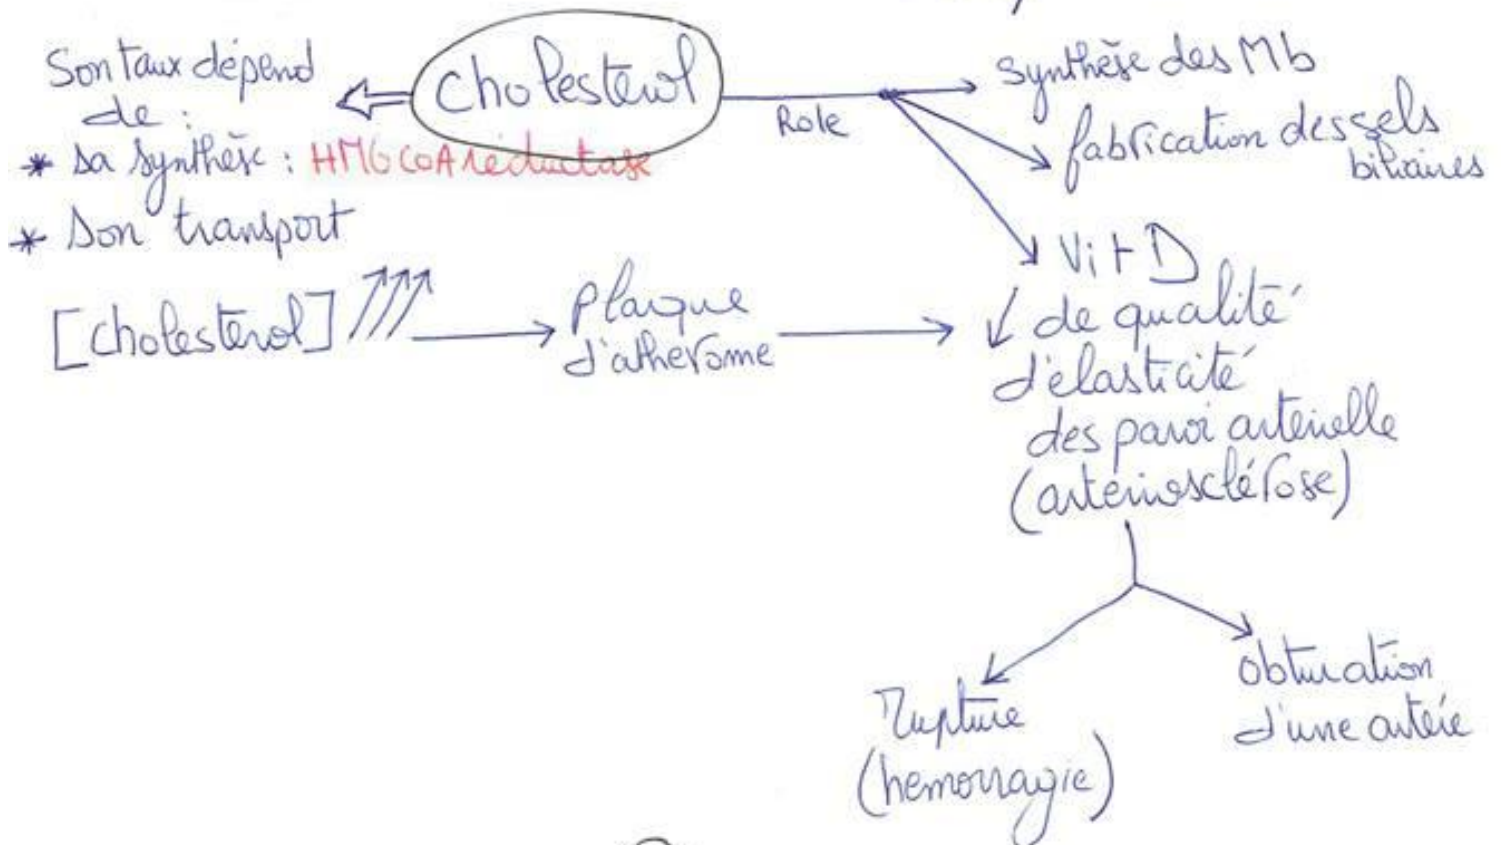 Son taux dépend
de :
* sa synthèse : HMG CoA réductase
* Son transport
cholesterol
Role
synthèse des Mb
fabrication des sels
biliaires
Vit D
[cholesterol] ↗↗↗
Plaque
d'atherome
↓ de qualité
d'élasticité
des paroi arterielle
(arteriosclérose)
Rupture
(hemorragie)
obturation
d'une artère